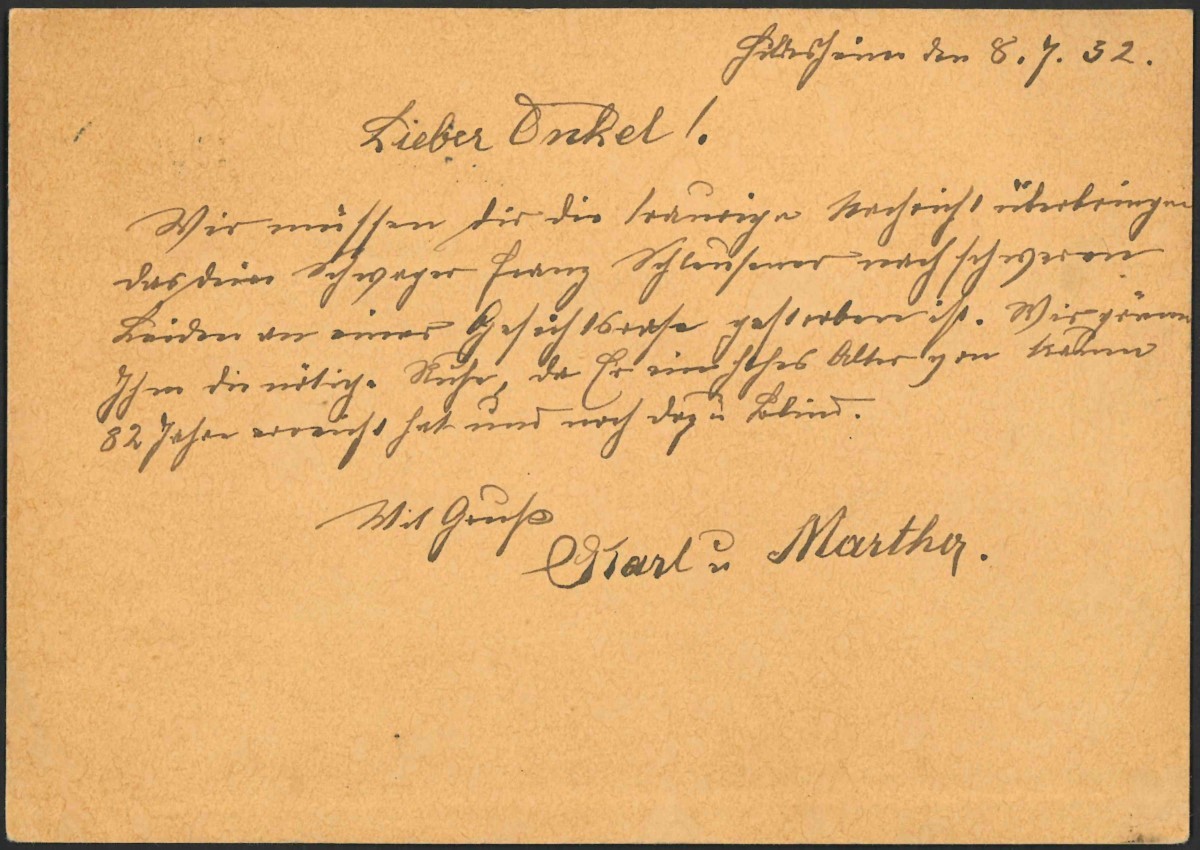 Hildesheim den 8.7.32.
Lieber Onkel!.
Wir müssen dir die traurige Nachricht überbringen
das dein Schwager Franz Schleusener nach schweren
Leiden an einer Gesichtsrose gestorben ist. Wir gönnen
Ihm die nötige Ruhe, da Er ein hohes Alter von
82 Jahre erreicht hat und noch dazu Blind.
Mit Gruß
Karl u Martha.